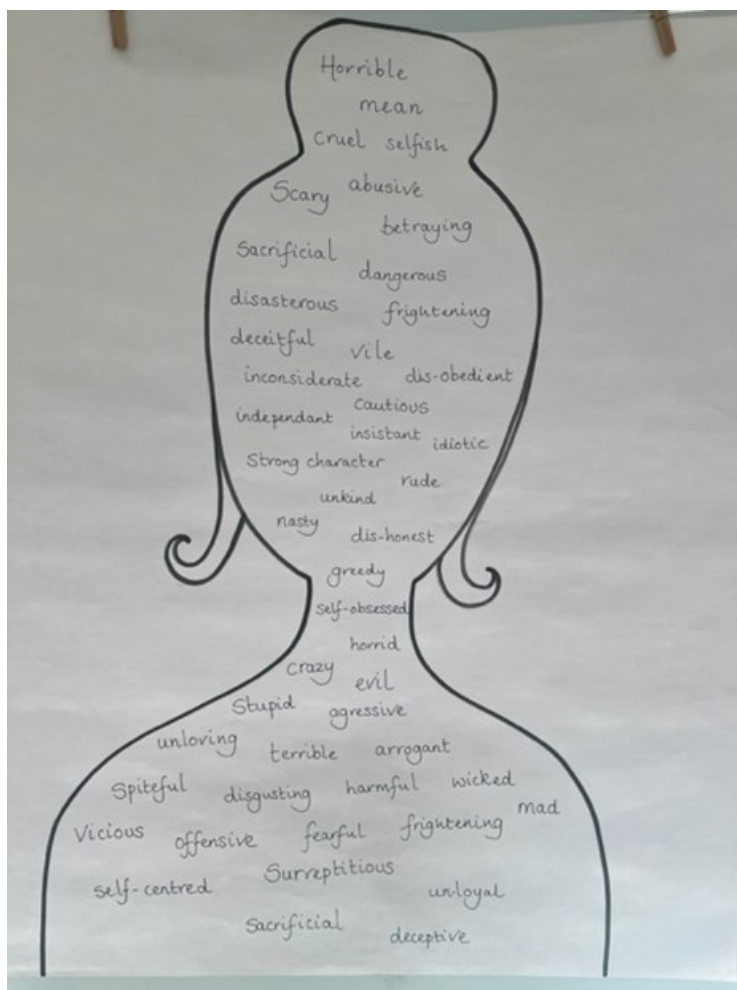 Horrible
mean
Cruel selfish
Scary abusive
betraying
Sacrificial
dangerous
disasterous frightening
deceitful vile
inconsiderate dis-obedient
independant cautious
insistant idiotic
Strong character
rude
unkind
nasty
dis-honest
greedy
self-obsessed
horrid
crazy
evil
Stupid agressive
unloving terrible arrogant
Spiteful disgusting harmful wicked
mad
Vicious offensive fearful frightening
Surreptitious
self-centred un-loyal
Sacrificial
deceptive